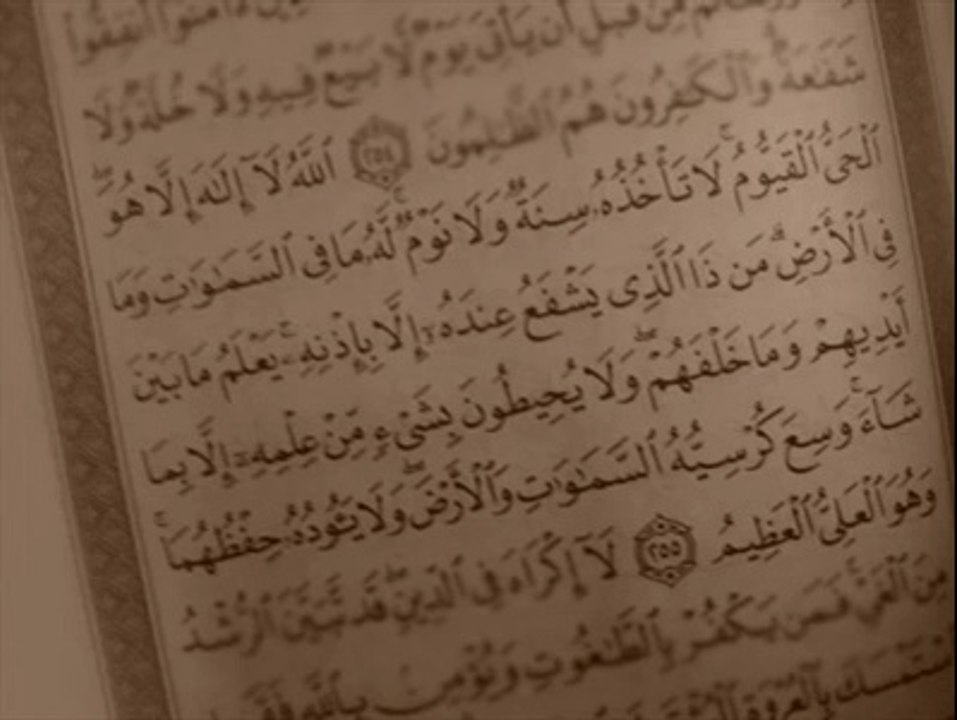 ءَامَنُوٓا۟ أَنفِقُوا۟
مِّن قَبْلِ أَن يَأْتِىَ يَوْمٌ لَّا بَيْعٌ فِيهِ وَلَا خُلَّةٌ وَلَا
شَفَٰعَةٌ ۗ وَٱلْكَٰفِرُونَ هُمُ ٱلظَّٰلِمُونَ ٢٥٤ ٱللَّهُ لَآ إِلَٰهَ إِلَّا هُوَ
ٱلْحَىُّ ٱلْقَيُّومُ ۚ لَا تَأْخُذُهُۥ سِنَةٌ وَلَا نَوْمٌ ۚ لَّهُۥ مَا فِى ٱلسَّمَٰوَٰتِ وَمَا
فِى ٱلْأَرْضِ ۗ مَن ذَا ٱلَّذِى يَشْفَعُ عِندَهُۥٓ إِلَّا بِإِذْنِهِۦ ۚ يَعْلَمُ مَا بَيْنَ
أَيْدِيهِمْ وَمَا خَلْفَهُمْ ۖ وَلَا يُحِيطُونَ بِشَىْءٍ مِّنْ عِلْمِهِۦٓ إِلَّا بِمَا
شَآءَ ۚ وَسِعَ كُرْسِيُّهُ ٱلسَّمَٰوَٰتِ وَٱلْأَرْضَ ۖ وَلَا يَـُٔودُهُۥ حِفْظُهُمَا ۚ
وَهُوَ ٱلْعَلِىُّ ٱلْعَظِيمُ ٢٥٥ لَآ إِكْرَاهَ فِى ٱلدِّينِ ۖ قَد تَّبَيَّنَ ٱلرُّشْدُ
مِنَ ٱلْغَىِّ ۚ فَمَن يَكْفُرْ بِٱلطَّٰغُوتِ وَيُؤْمِنۢ بِٱللَّهِ فَقَدِ
ٱسْتَمْسَكَ بِٱلْعُرْوَةِ